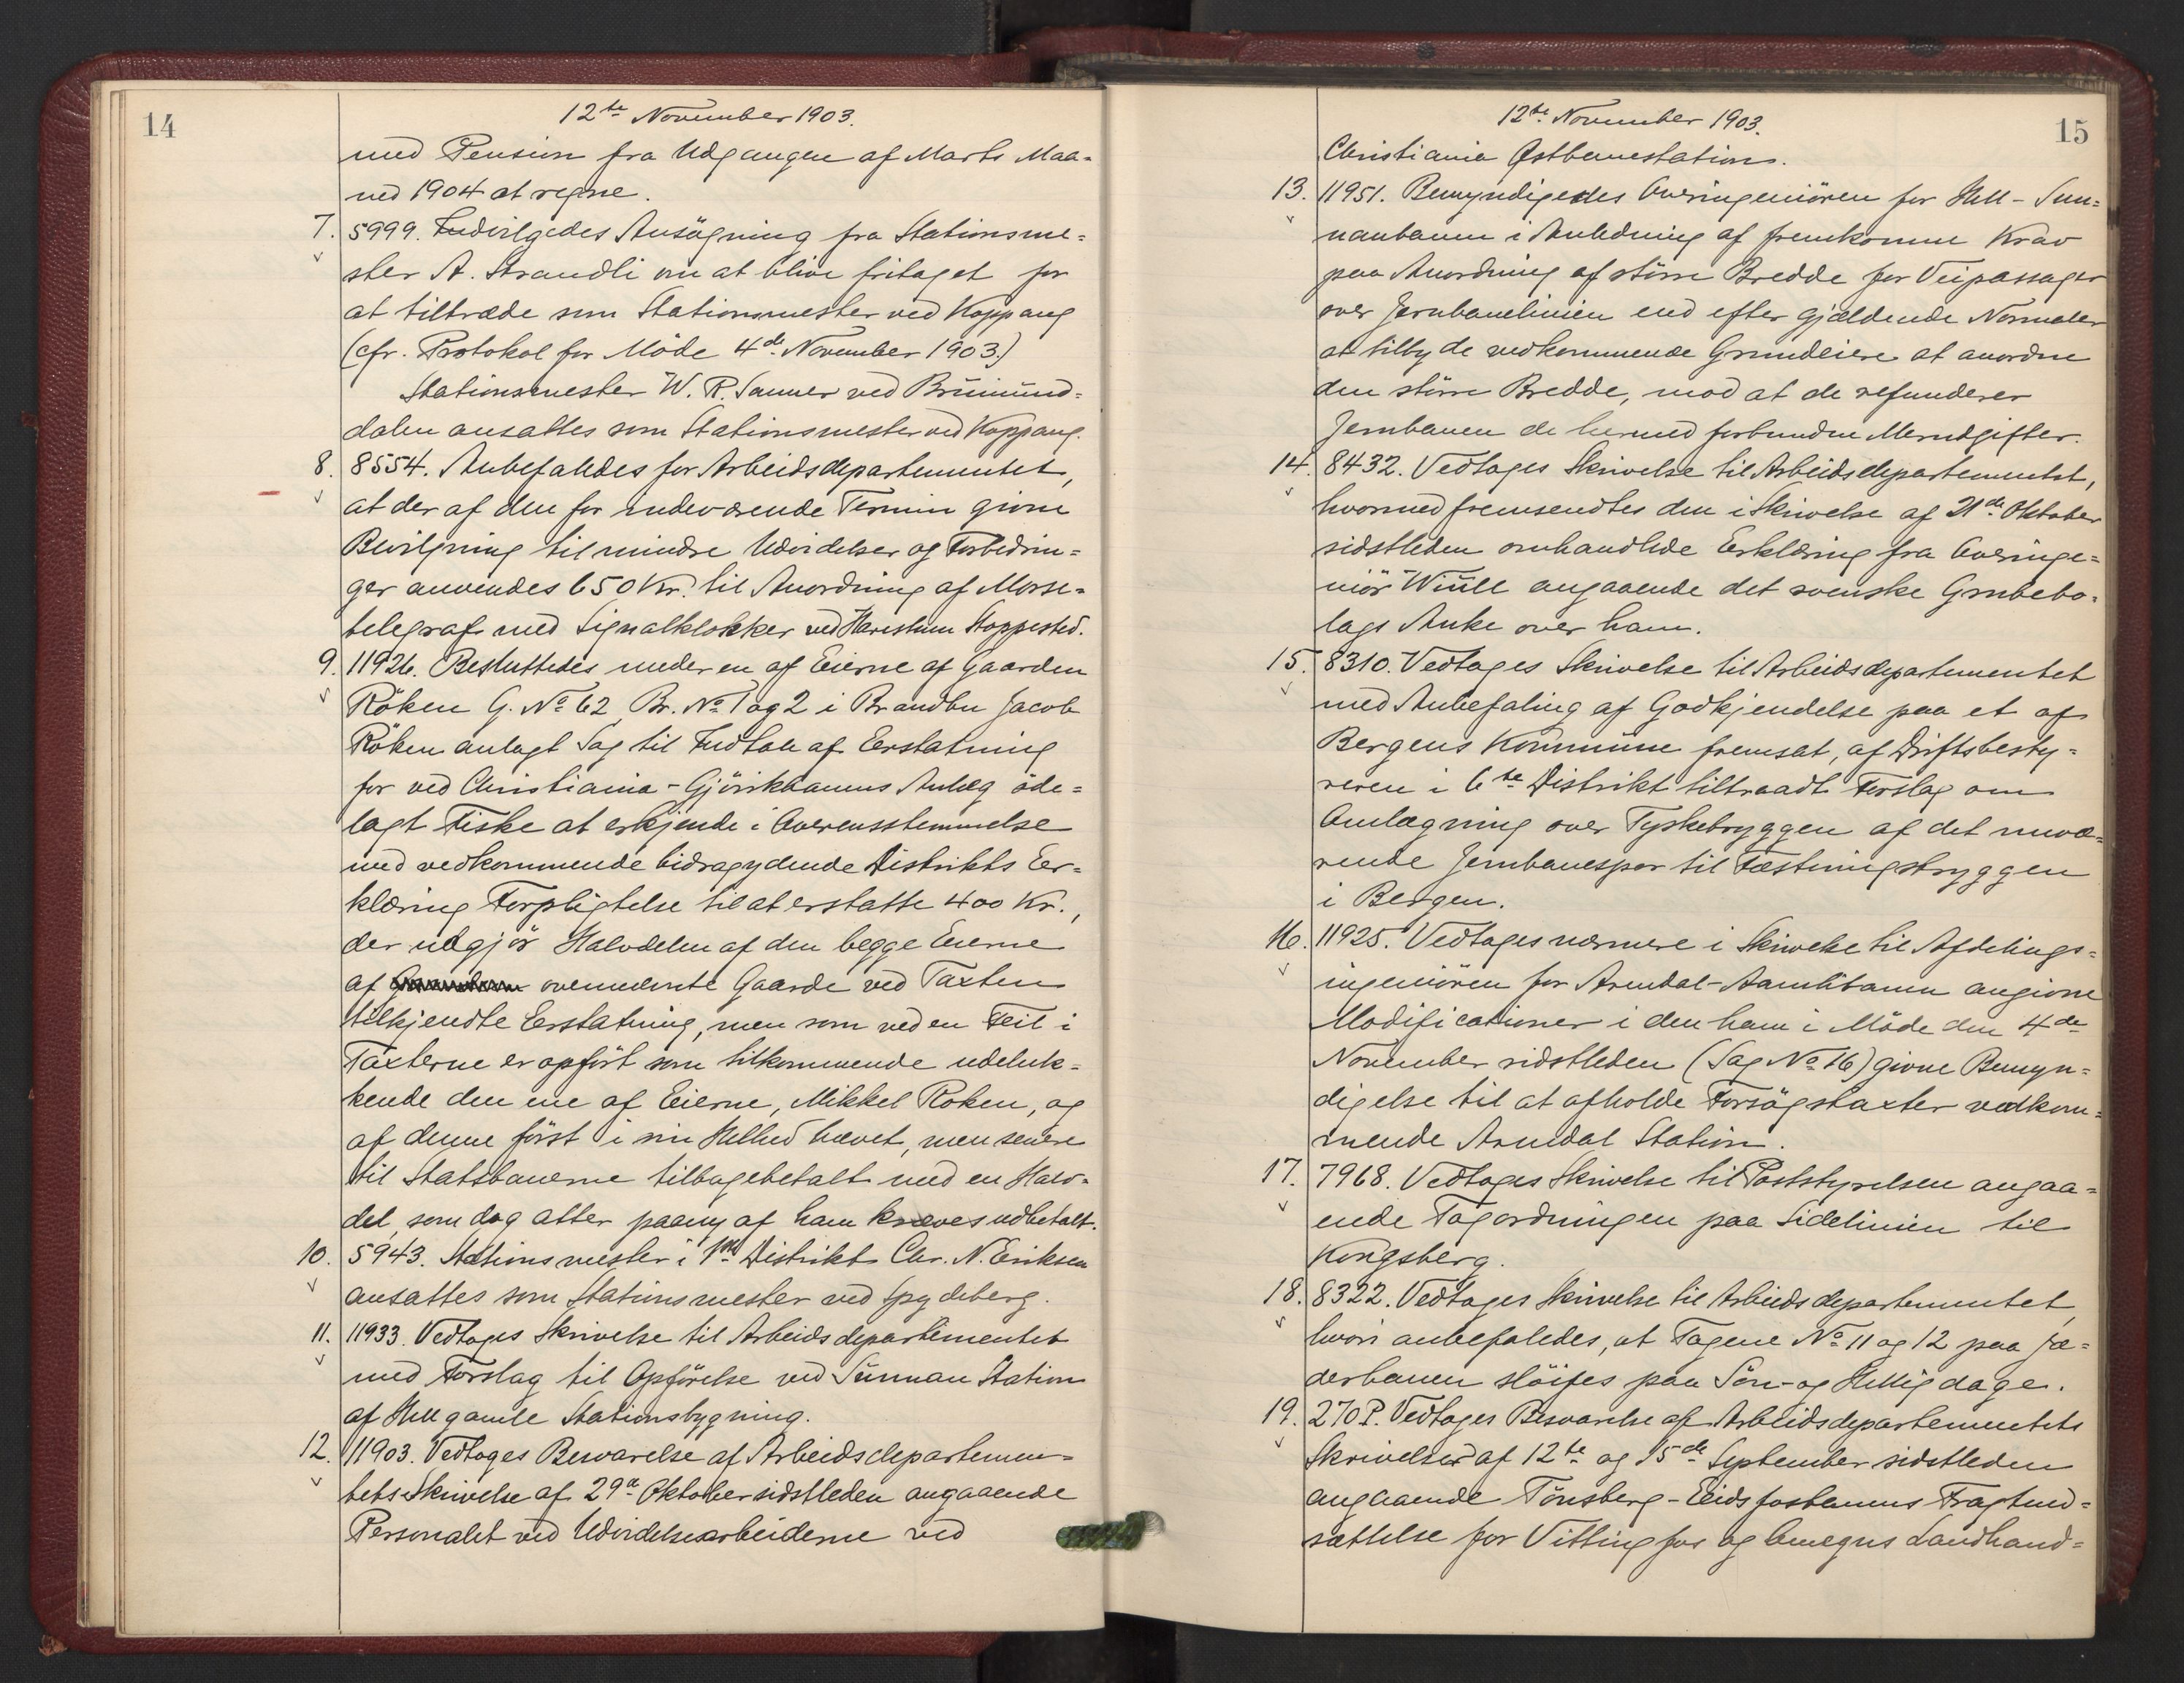 14
12te November 1903.
med Pension fra Udgangen af Marts Maa-
ned 1904 at regne.
7. 5999. Indvilgedes Ansögning fra Stationsme-
ster A. Strandli om at blive fritaget for
at tiltræde som Stationsmester ved Koppang
(cfr. Protokol for Möde 4de November 1903.)
Stationsmester W. R. Sanner ved Brumund-
dalen ansattes som Stationsmester ved Koppang.
8. 8554. Anbefaledes for Arbeidsdepartementet,
at der af den for indeværende Termin givne
Bevilgning til mindre Udvidelser og Forbedrin-
ger anvendes 650 Kr. til Anordning af Morse-
telegraf med Signalklokker ved Harestuen Stoppested.
9. 11926. Besluttedes under en af Eierne af Gaarden
Röken G. No 62 Br. No 1 og 2 i Brandbu Jacob
Röken anlagt Sag til Indtale af Erstatning
for ved Christiania-Gjövikbanens Anlæg öde-
lagt Fiske at erkjende i Overensstemmelse
med vedkommende bidragydende Distrikts Er-
klæring Forpligtelse til at erstatte 400 Kr.,
der udgjör Halvdelen af den begge Eierne
af ovennævnte Gaarde ved Taxten
tilkjendte Erstatning, men som ved en Feil i
Taxterne er opfört som tilkommende udeluk-
kende den ene af Eierne, Mikkel Röken, og
af denne först i sin Helhed hævet, men senere
til Statsbanerne tilbagebetalt med en Halv-
del, som dog atter paany af ham kræves udbetalt.
10. 5943. Stationsmester i 1ste Distrikt Chr. N. Eriksen
ansattes som Stationsmester ved Spydeberg.
11. 11933. Vedtoges Skrivelse til Arbeidsdepartementet
med Forslag til Opförelse ved Sunnan Station
af Hell gamle Stationsbygning.
12. 11903. Vedtoges Besvarelse af Arbeidsdepartemen-
tets Skrivelse af 29de Oktober sidstleden angaaende
Personalet ved Udvidelsesarbeiderne ved
15
12te November 1903.
Christiania Østbanestation.
13. 11951. Bemyndigedes Overingeniören for Hell-Sun-
nanbanen i Anledning af fremkomne Krav
paa Anordning af större Bredde for Veipassager
over Jernbanelinien end efter gjældende Normaler
at tilbyde vedkommende Grundeiere at anordne
den större Bredde, mod at de refunderer
Jernbanen de hermed forbundne Merudgifter.
14. 8432. Vedtoges Skrivelse til Arbeidsdepartementet,
hvormed fremsendtes den i Skrivelse af 21de Oktober
sidstleden omhandlede Erklæring fra Overinge-
niör Wiull angaaende det svenske Grubebo-
lags Anke over ham.
15. 8310. Vedtoges Skrivelse til Arbeidsdepartementet
med Anbefaling af Godkjendelse paa et af
Bergens Kommune fremsat, af Driftsbesty-
reren i 6te Distrikt tiltraadt Forslag om
Omlægning over Tyskebryggen af det nuvæ-
rende Jernbanespor til Fæstningsbryggen
i Bergen.
16. 11925. Vedtoges nærmere i Skrivelse til Afdelings-
ingeniören for Arendal-Aamlibanen angivne
Modificationer i den ham i Möde den 4de
November sidstleden (Sag No 16) givne Bemyn-
digelse til at afholde Forsögstaxter vedkom-
mende Arendal Station.
17. 7968. Vedtoges Skrivelse til Poststyrelsen angaa-
ende Togordningen paa Sidelinien til
Kongsberg.
18. 8322. Vedtoges Skrivelse til Arbeidsdepartementet,
hvori anbefaledes, at Togene No 11 og 12 paa Jæ-
derbanen slöifes paa Sön- og Helligdage.
19. 270 P. Vedtoges Besvarelse af Arbeidsdepartementets
Skrivelser af 12te og 15de September sidstleden
angaaende Tönsberg-Eidsfosbanens Fragtned-
sættelse for Vittingfos og Omegns Landhand-